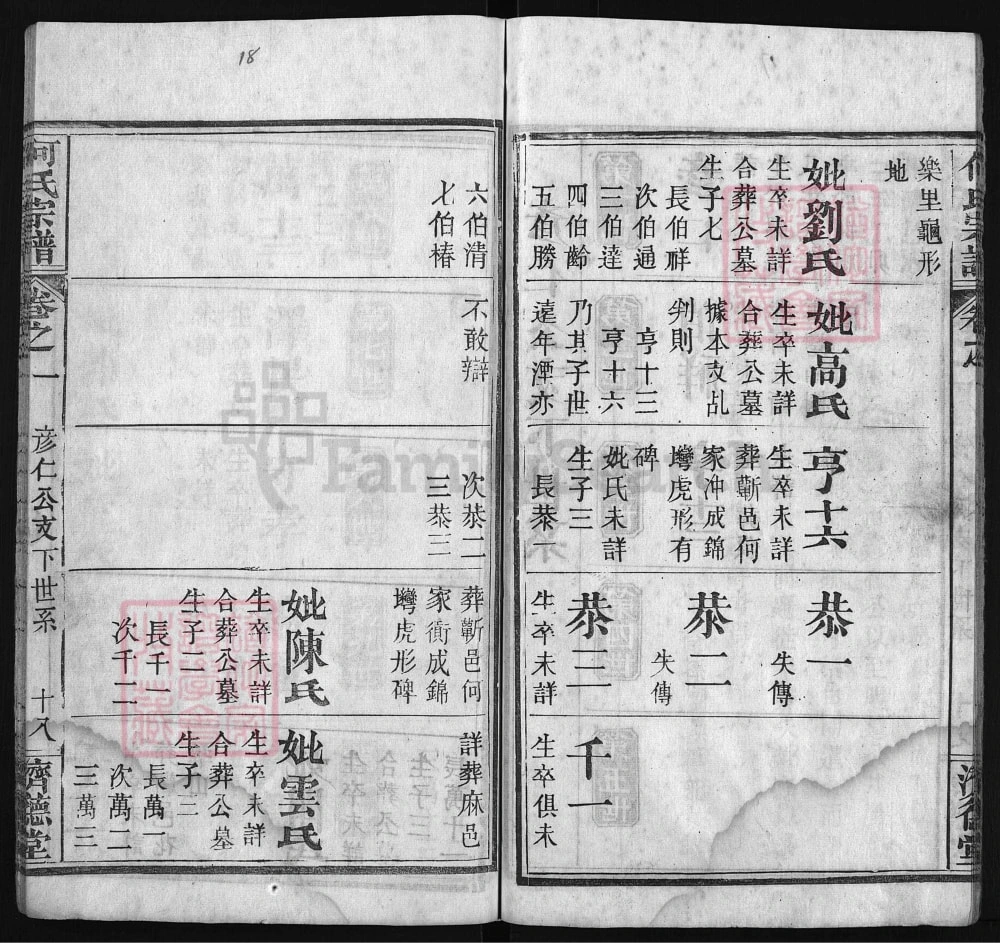 18
樂里龜形
地
妣劉氏
生卒未詳
合葬公墓
生子七
長伯祥
次伯通
三伯達
四伯齡
五伯勝
妣高氏
生卒未詳
合葬公墓
據本支乩
判則
亨十三
亨十六
乃其子世
遠年湮亦
亨十六
生卒未詳
葬蘄邑何
家冲成錦
灣虎形有
碑
妣氏未詳
生子三
長恭一
恭一
失傳
恭二
失傳
恭三
生卒未詳
千一
生卒俱未
六伯清
七伯椿
不敢辯
次恭二
三恭三
葬蘄邑何
家衝成錦
灣虎形碑
妣陳氏
生卒未詳
合葬公墓
生子二
長千一
次千二
詳葬麻邑
妣雲氏
生卒未詳
合葬公墓
生子三
長萬一
次萬二
三萬三
何氏宗譜
卷之一
彥仁公支下世系
十八
濟德堂
FamilySearch